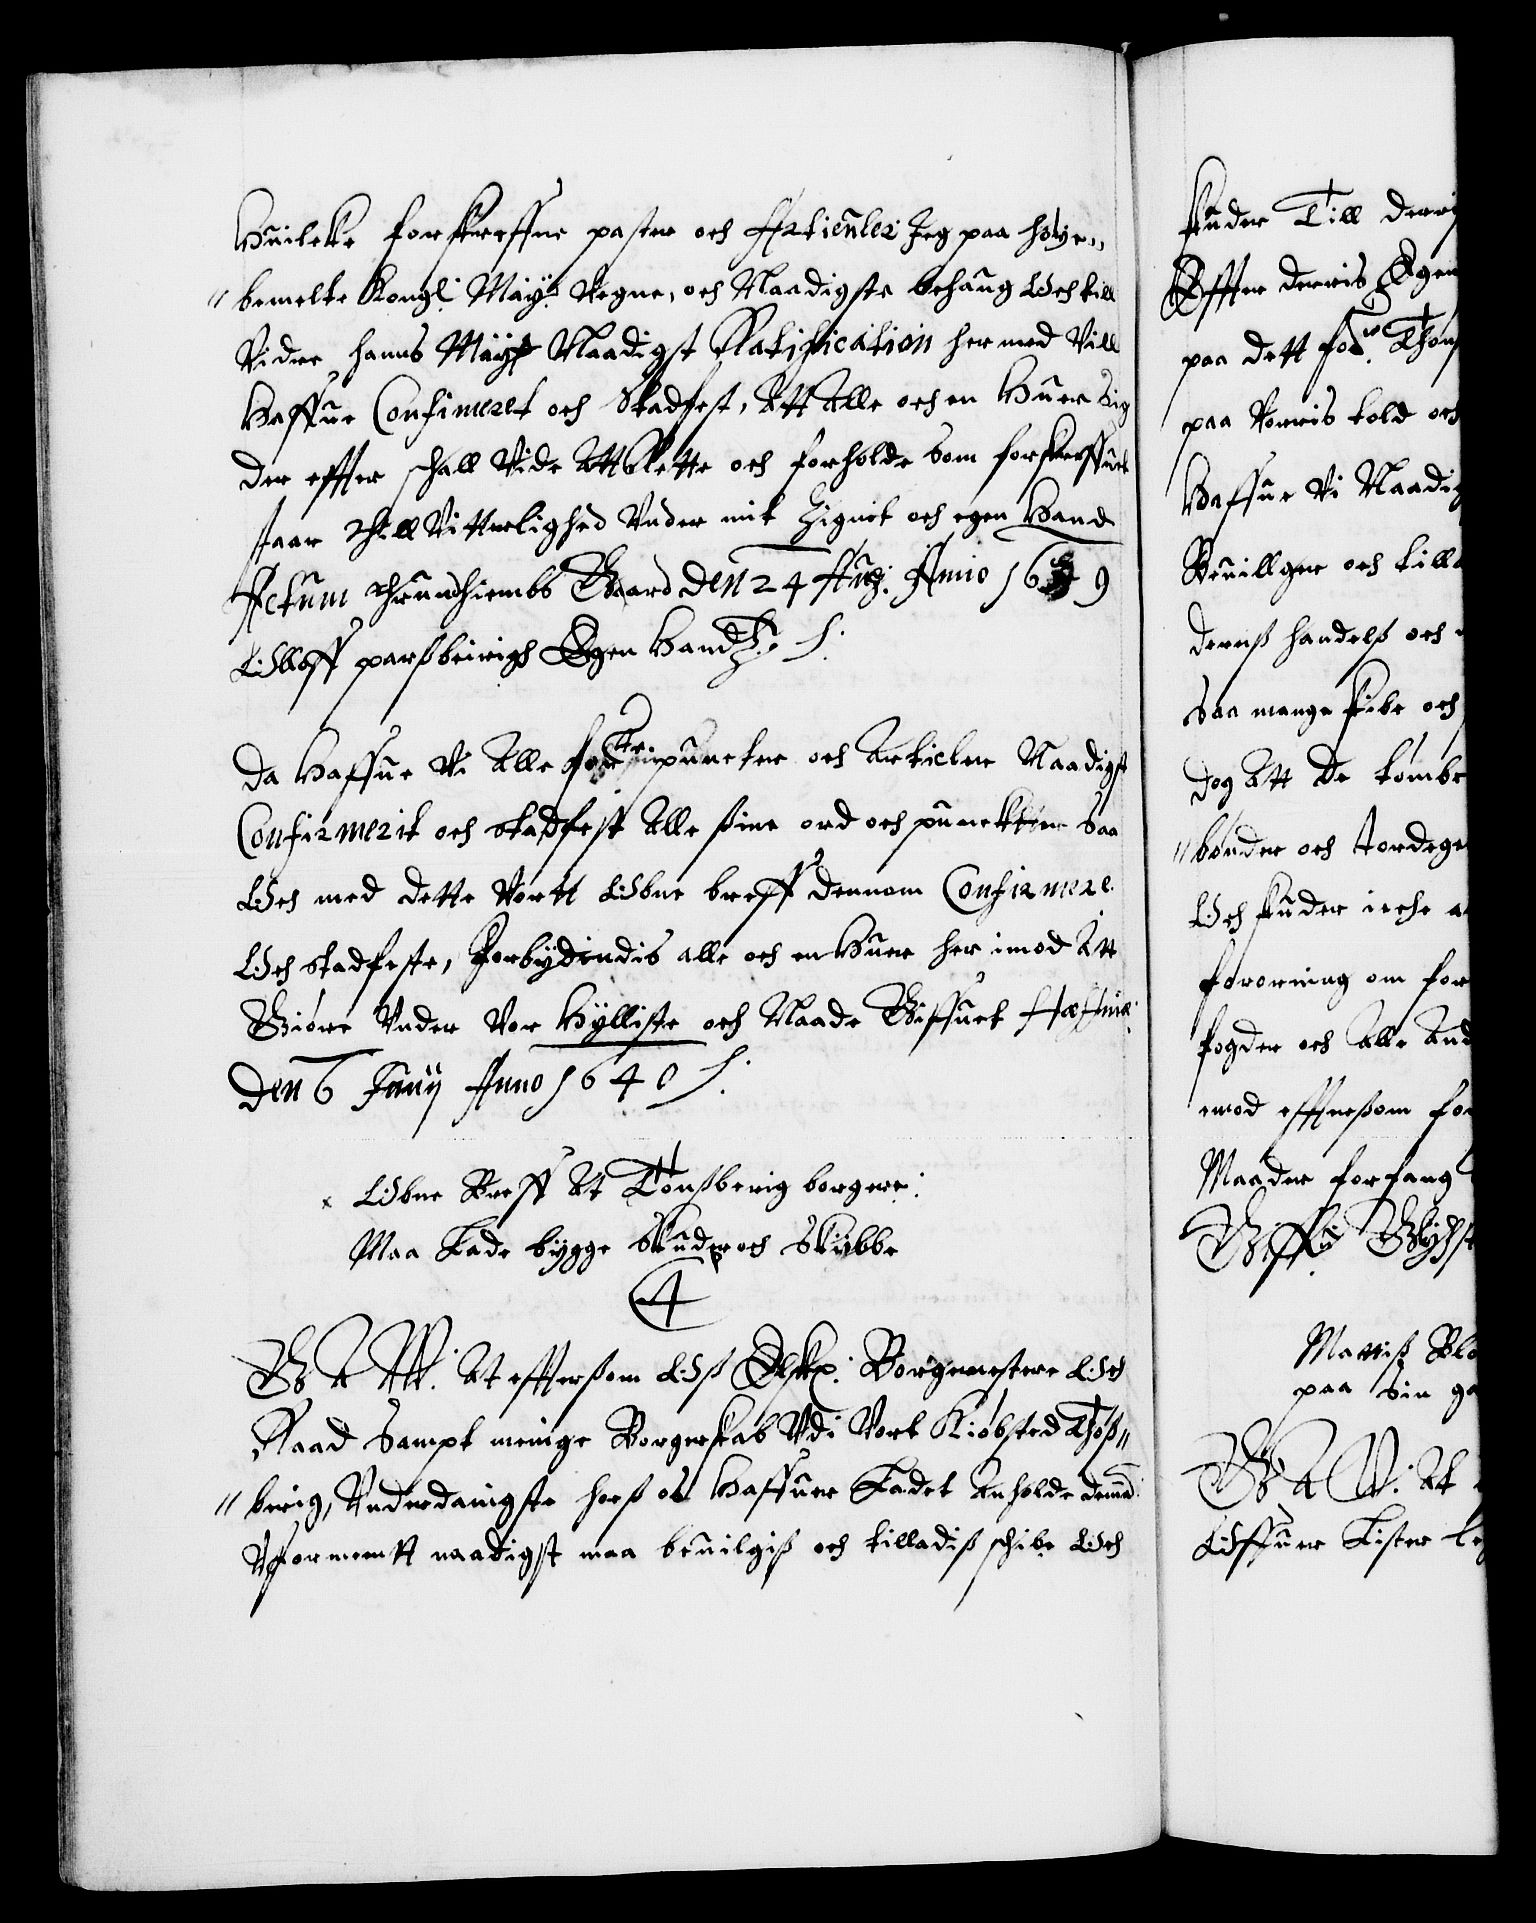 Huilcke forskreffne paster och Articuler Jeg paa høye„
„ bemelte Kongl: Mayts Vegne, och Naadigste behaug Och till
Videre hanns Mayts Naadigst Ratification hermed Vill
Haffue Confirmeret och Stadfest, Att Alle och en Huer Sig
der effter schall Vide Att Rette och forholde som forskreffuet
staar Thill Vitterlighed Vnder mit Zignet och egen Hand
Actum Thrundhiembs Gaard den 24 Aug: Anno 1639
Olloff parsbierigh Egen Hand
Da Haffue Vi Alle puncter och Articler Naadigst
Confirmerit och stadfest Alle sine ord och puncter Saa
Och med dette Vortt Obne breff dennom Confirmere
Och stadfeste, Forbydendis alle och en Huer her imod Att
Giøre Vnder Vor Hylliste och Naade Giffuet Haffniæ
den 6 Juny Anno 1640
Obne Breff At Tonsberig borgere
Maa Lade bygge Skuder och Skibbe
4
G A W: At efftersom Oss Elskl: Borgemestere Och
Raad Sampt meinige Borgerskab Vdi Vort Kiøbsted Thøns„
„ berig, Vnderdanigste hoes os Haffuer Ladet Anholde demed
Vformentt naadigst maa beuilgis och tilladis schibe Och
skuder Till derris
Effter derris Egen
paa dett for: Thons
paa Vorris told och
Haffue Vi Naadig
Beuillger och till
deris handels och
Saa mange skibe och
dog Att De
„ bønder och Jordege
Och skuder icke
forordning om for
fogder och Alle And
emod effterssom for
Maader forfang
Giffu Glychst
paa Sin ga
G A W: At
Offuer Lister